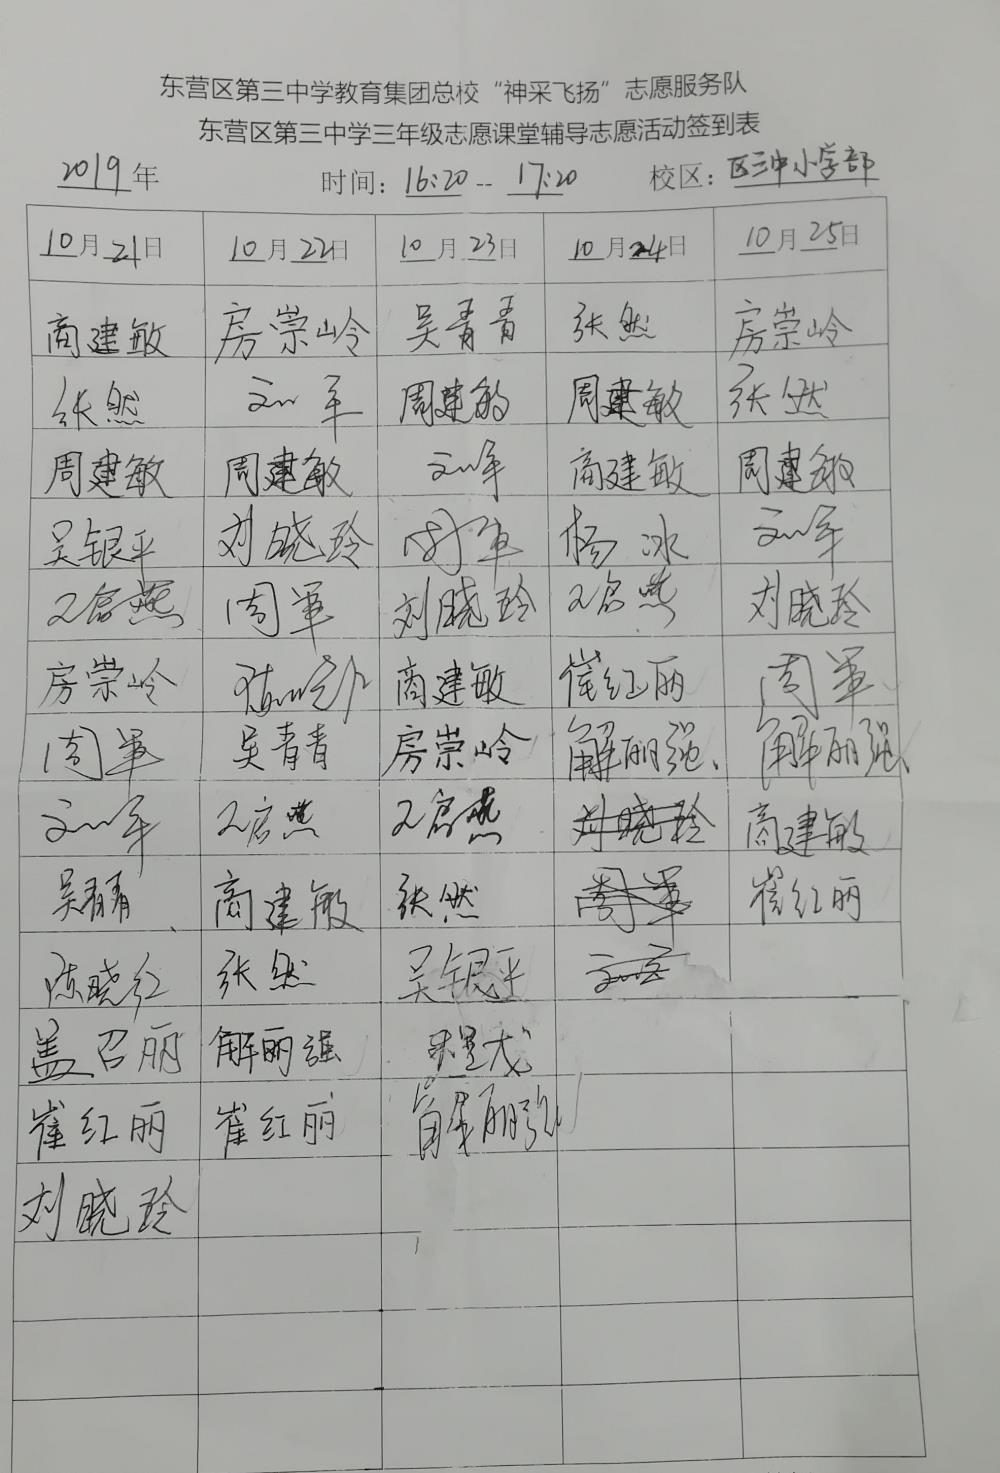 东营区第三中学教育集团总校“神采飞扬”志愿服务队
东营区第三中学三年级志愿课堂辅导志愿活动签到表
2019年 时间：16:20--17:20 校区：区三中小学部
10月21日 10月22日 10月23日 10月24日 10月25日
商建敏 房崇岭 吴青青 张然 房崇岭
张然 周建敏 周建敏 张然
周建敏 周建敏 商建敏 周建敏
吴银平 刘晓玲 周军 杨冰
周军 刘晓玲 刘晓玲
房崇岭 商建敏 崔红丽 周军
周军 吴青青 房崇岭 解丽强、 解丽强、
刘晓玲 商建敏
吴青青 商建敏 张然 周军 崔红丽
陈晓红 张然 吴银平
盖召丽 解丽强
崔红丽 崔红丽 解丽强
刘晓玲